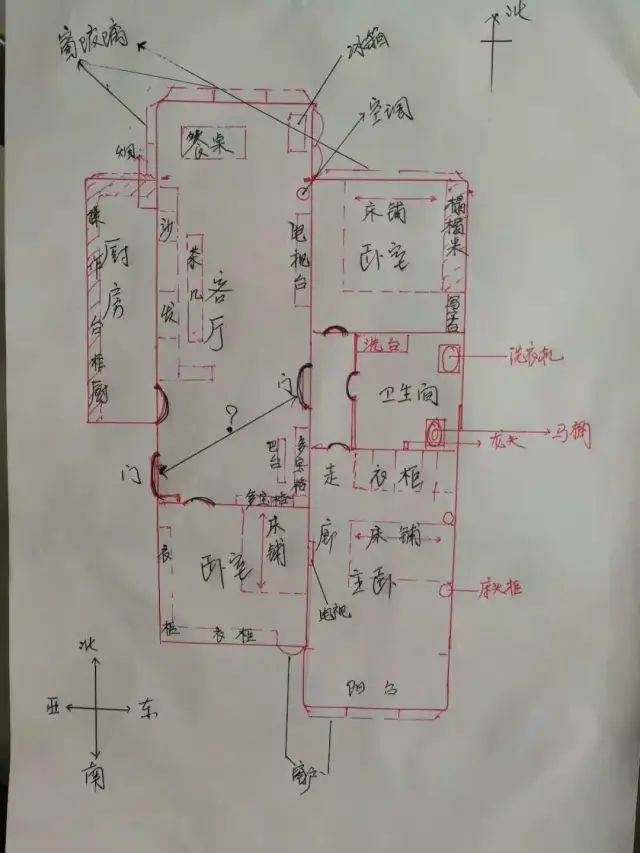 北
窗玻璃
冰箱
空调
餐桌
烟
沙发
茶几
客厅
电视台
床铺
卧室
榻榻米
写字台
操作台柜厨
厨房
洗台
洗衣机
卫生间
马桶
龙头
门
?
门
吧台
多宝格
多宝格
走廊
衣柜
床铺
卧室
衣柜
衣柜
床铺
主卧
床头柜
电视
阳台
窗户
北
西
东
南